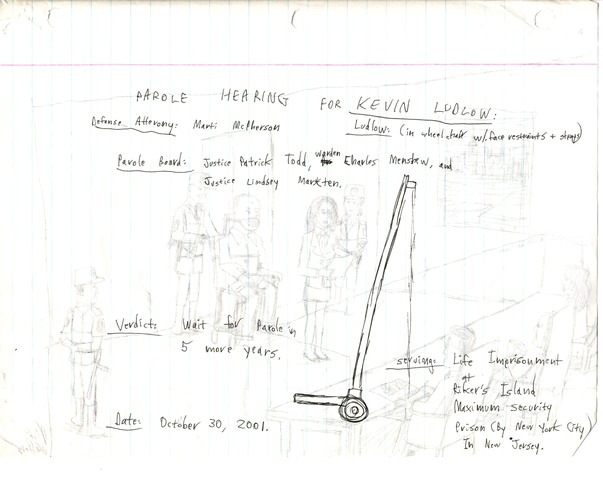 PAROLE HEARING FOR KEVIN LUDLOW:
Defense Atterony: Marti McPherson
Ludlow: (in wheelchair w/ face restraints + straps)
Parole Board: Justice Patrick Todd, warden Charles Menshew, and
Justice Lindsey Markten.
Verdict: Wait for Parole in
5 more years.
serving: Life Imprisonment
at
Riker's Island
Maximum security
Prison (By New York City)
In New Jersey.
Date: October 30, 2001.